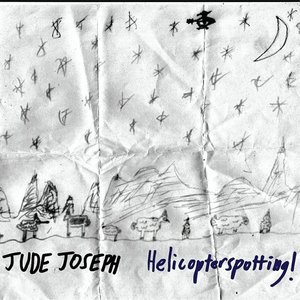 JUDE JOSEPH Helicopterspotting!